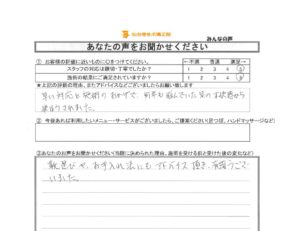 みんなの声
あなたの声をお聞かせください
① お客様の評価に近いものに○をつけてください。 ←不満 普通 満足→
スタッフの対応は親切・丁寧でしたか? 1 2 3 4 5
施術の結果にご満足されていますか? 1 2 3 4 5
★上記の評価の理由、またアドバイスなどございましたらお願い致します
良い対応と施術のおかげで、何年も悩んでいた足の
② 今後あれば利用したいメニュー・サービスがございましたら、ご提案ください(足つぼ、ハンドマッサージなど)
③あなたのお声をお聞かせください
靴選びや、お手入れ法にもアドバイス頂き、有難うござ
いました。